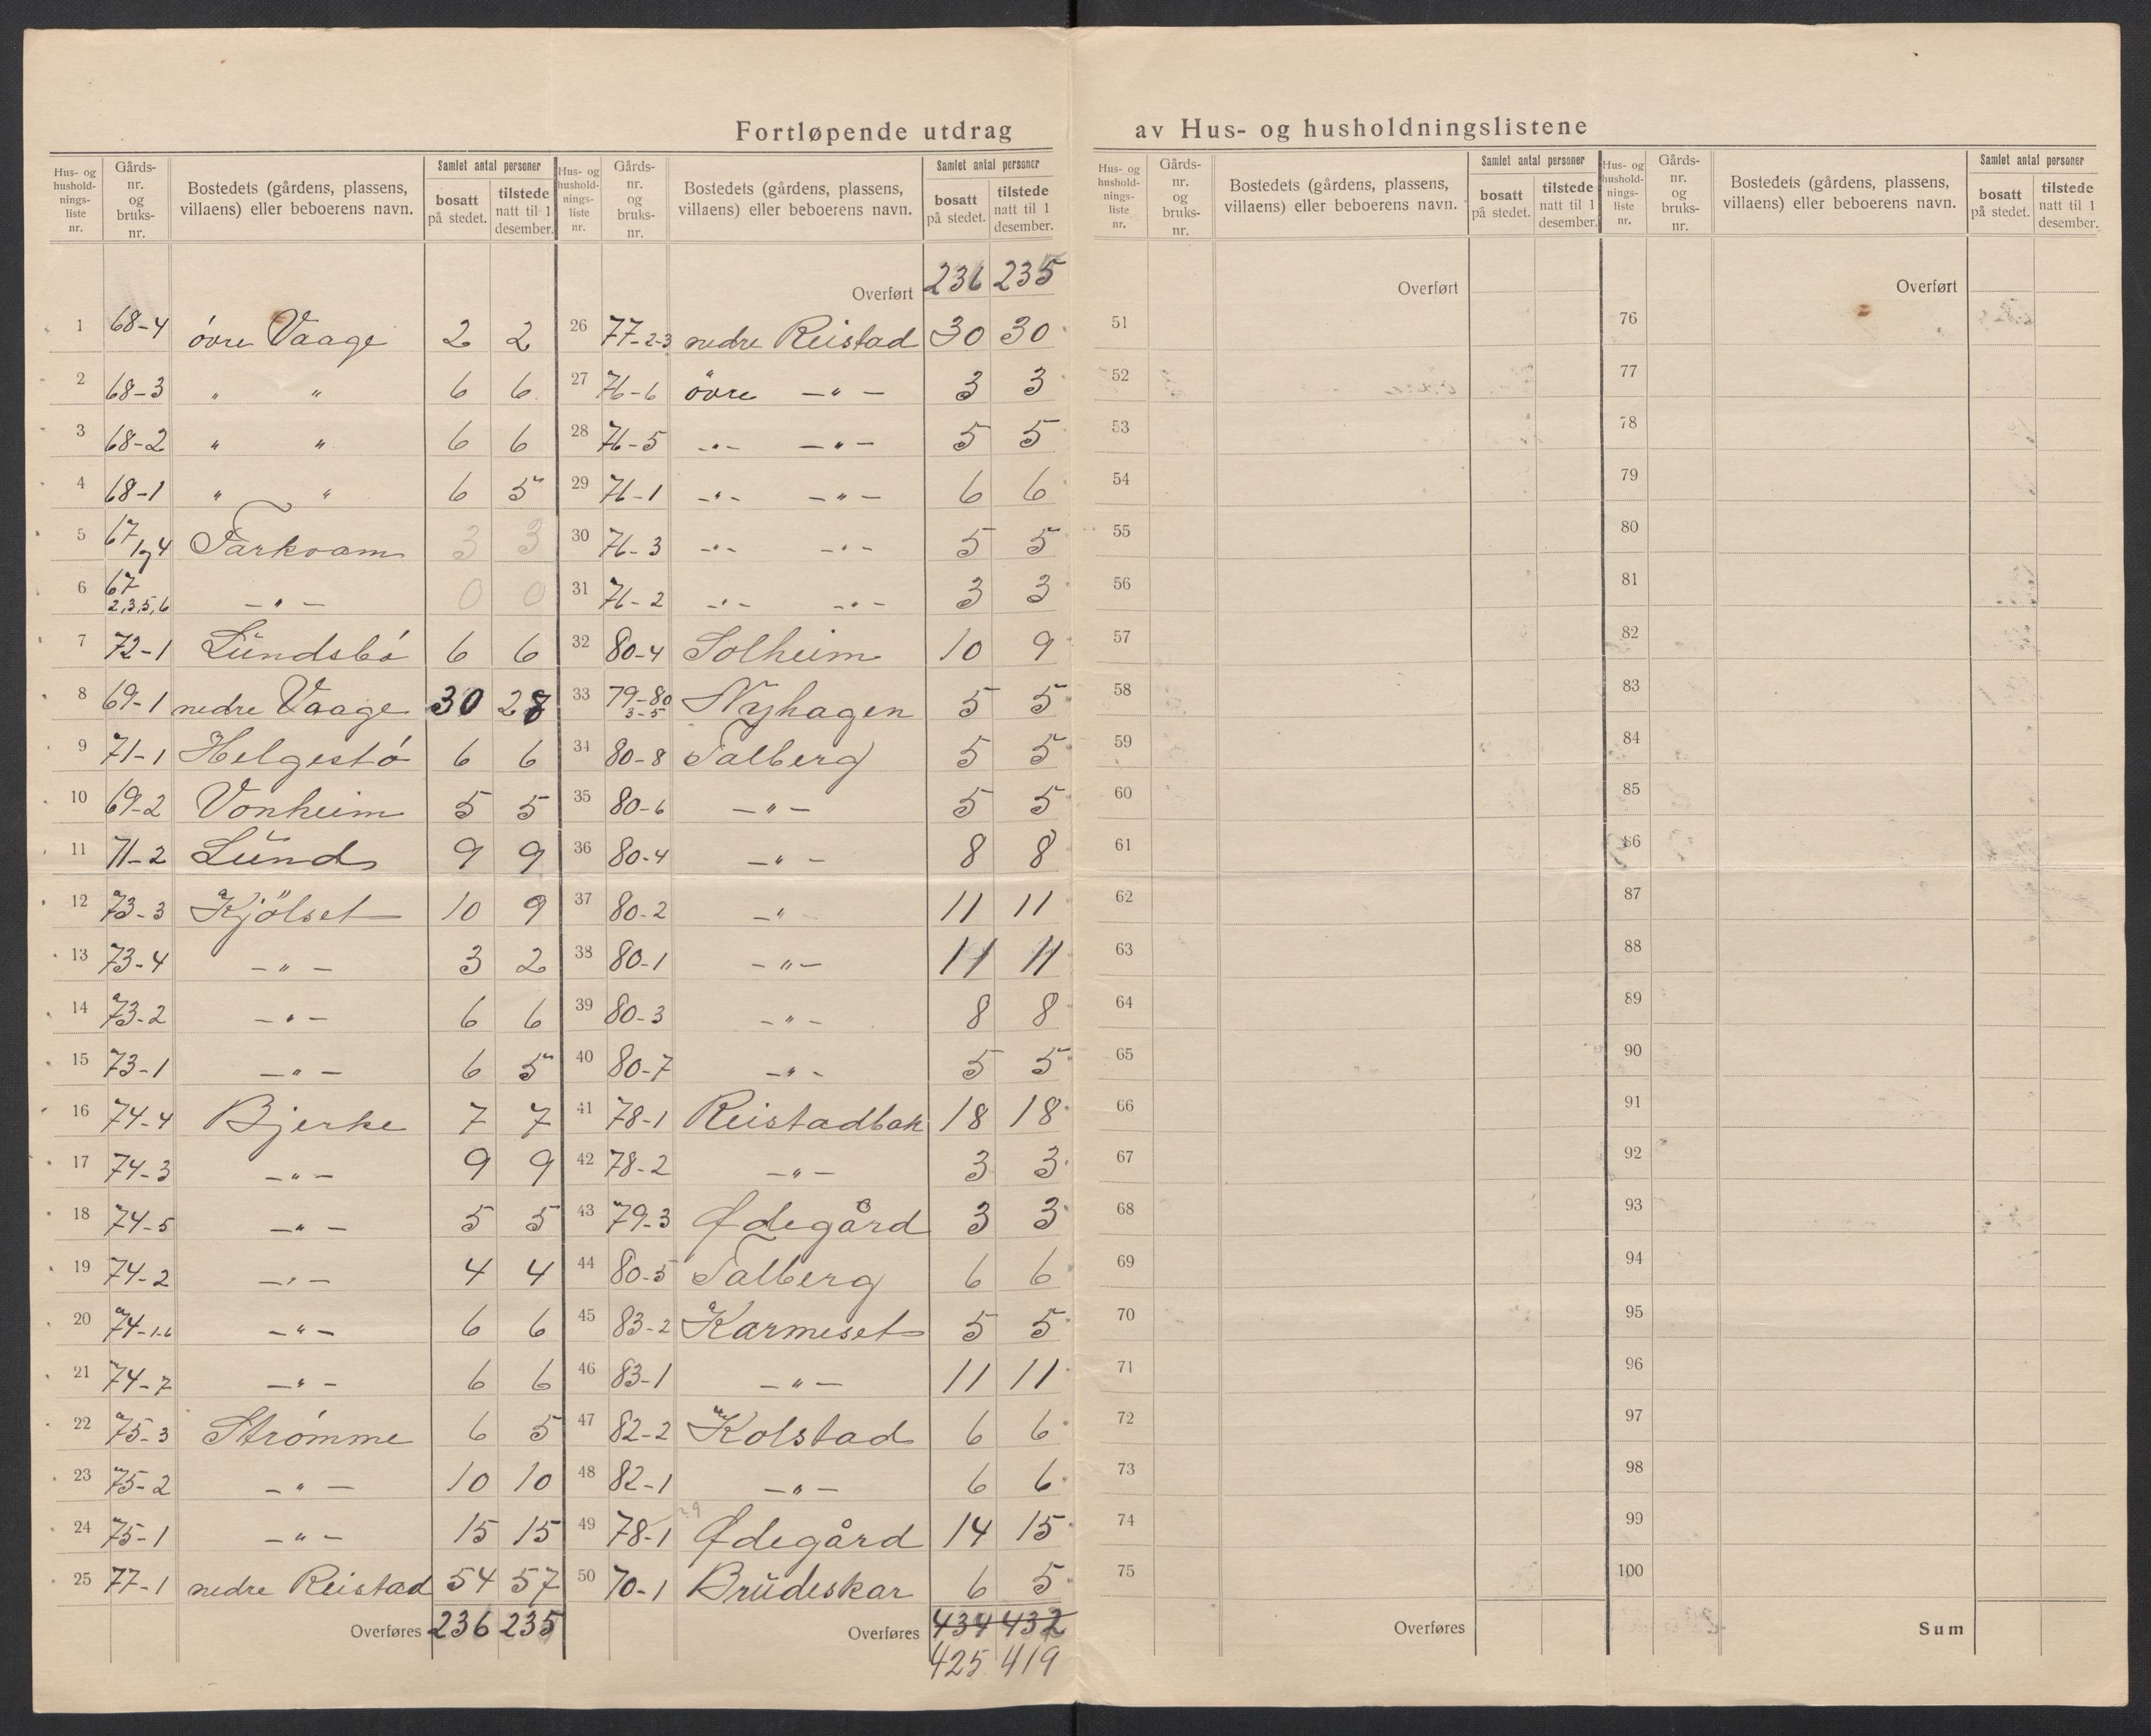 Fortløpende utdrag av Hus- og husholdningslistene
Hus- og hushold-nings-liste nr. Gårds-nr. og bruks-nr. Bostedets (gårdens, plassens, villaens) eller beboerens navn. Samlet antal personer bosatt på stedet. tilstede natt til 1 desember.
Hus- og hushold-nings-liste nr. Gårds-nr. og bruks-nr. Bostedets (gårdens, plassens, villaens) eller beboerens navn. Samlet antal personer bosatt på stedet. tilstede natt til 1 desember.
Hus- og hushold-nings-liste nr. Gårds-nr. og bruks-nr. Bostedets (gårdens, plassens, villaens) eller beboerens navn. Samlet antal personer bosatt på stedet. tilstede natt til 1 desember.
Hus- og hushold-nings-liste nr. Gårds-nr. og bruks-nr. Bostedets (gårdens, plassens, villaens) eller beboerens navn. Samlet antal personer bosatt på stedet. tilstede natt til 1 desember.
1 68-4 óvre Vaage 2 2
2 68-3 " " 6 6
3 68-2 " " 6 6
4 68-1 " " 6 5
5 67 1 og 4 Tarkvam 3 3
6 67 2,3,5,6 -"- 0 0
7 72-1 Lundsbó 6 6
8 69-1 nedre Vaage 30 28
9 71-1 Helgestó 6 6
10 69-2 Vonheim 5 5
11 71-2 Lund 9 9
12 73-3 Kjölset 10 9
13 73-4 -"- 3 2
14 73-2 -"- 6 6
15 73-1 -"- 6 5
16 74-4 Bjerke 7 7
17 74-3 -"- 9 9
18 74-5 -"- 5 5
19 74-2 -"- 4 4
20 74-1-6 -"- 6 6
21 74-7 -"- 6 6
22 75-3 Strómme 6 5
23 75-2 -"- 10 10
24 75-1 -"- 15 15
25 77-1 nedre Reistad 54 57
Overføres 236 235
Overført 236 235
26 77-2-3 nedre Reistad 30 30
27 76-6 övre -"- 3 3
28 76-5 -"- -"- 5 5
29 76-1 -"- -"- 6 6
30 76-3 -"- -"- 5 5
31 76-2 -"- -"- 3 3
32 80-4 Solheim 10 9
33 79-80 3-5 Nyhagen 5 5
34 80-8 Talberg 5 5
35 80-6 -"- 5 5
36 80-4 -"- 8 8
37 80-2 -" 11 11
38 80-1 -"- 11 11
39 80-3 -"- 8 8
40 80-7 -"- 5 5
41 78-1 Reistadbak 18 18
42 78-2 -"- 3 3
43 79-3 Ødegård 3 3
44 80-5 Talberg 6 6
45 83-2 Karmeset 5 5
46 83-1 -"- 11 11
47 82-2 Kolstad 6 6
48 82-1 -"- 6 6
49 78-1 Ødegård 14 15
50 70-1 Brudeskar 6 5
Overføres 434 432
425 419
Overført
51
52
53
54
55
56
57
58
59
60
61
62
63
64
65
66
67
68
69
70
71
72
73
74
75
Overføres
Overført
76
77
78
79
80
81
82
83
84
85
86
87
88
89
90
91
92
93
94
95
96
97
98
99
100
Sum